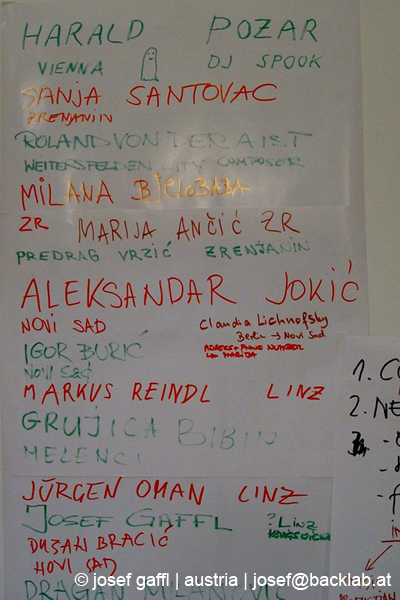 HARALD POZAR
VIENNA DJ SPOOK
SANJA SANTOVAC
ZRENJANIN
ROLAND VON DER AIST
WEITERSFELDEN CITY COMPOSER
MILANA BJELOBABA
ZR MARIJA ANČIĆ ZR
PREDRAG VRZIĆ ZRENJANIN
ALEKSANDAR JOKIĆ
NOVI SAD
Claudia Lichnofsky
Berlin → Novi Sad
ADRESS + PHONE NUMBER
MARIJA
IGOR BURIĆ
NOVI SAD
MARKUS REINDL LINZ
GRUJICA BIBIN
MELENCI
JÜRGEN OMAN LINZ
JOSEF GAFFL ? LINZ
DUŠAN BRACIĆ
NOVI SAD
DRAGAN MILANOVIĆ
1. C
2. NE
© josef gaffl | austria | josef@backlab.at